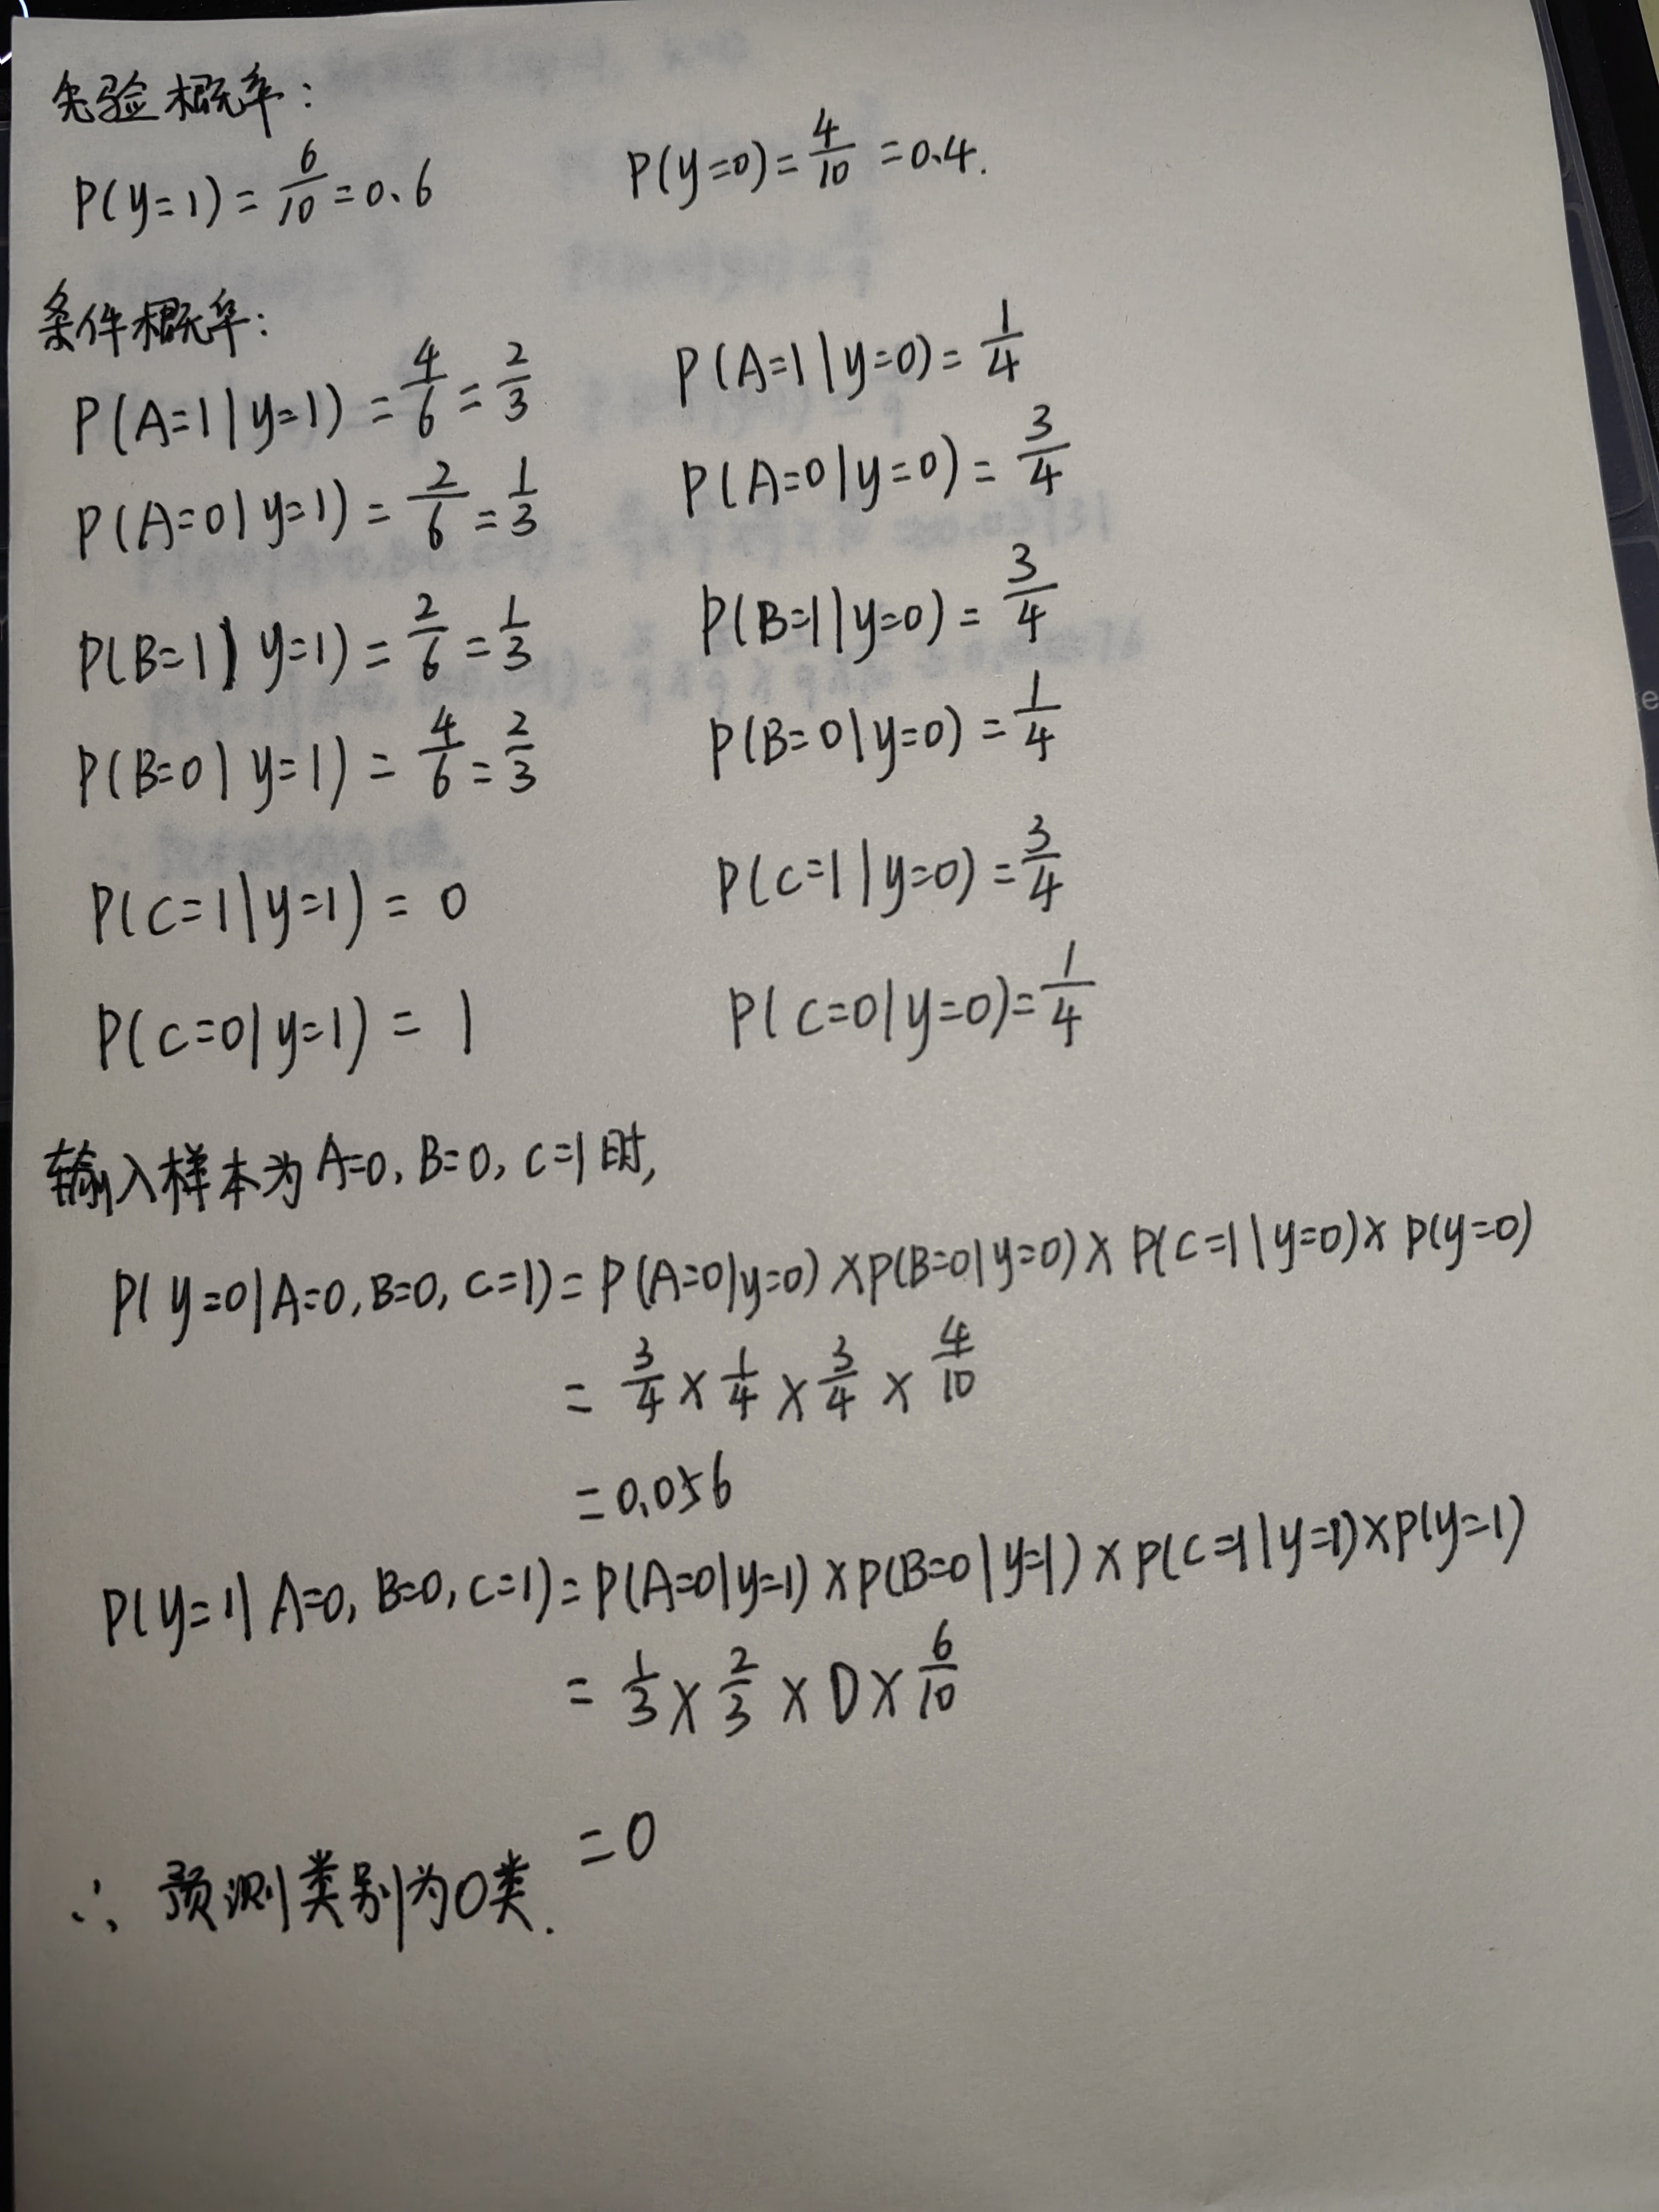 先验概率:
P(y=1) = 6/10 = 0.6 P(y=0) = 4/10 = 0.4.
条件概率:
P(A=1|y=1) = 4/6 = 2/3 P(A=1|y=0) = 1/4
P(A=0|y=1) = 2/6 = 1/3 P(A=0|y=0) = 3/4
P(B=1|y=1) = 2/6 = 1/3 P(B=1|y=0) = 3/4
P(B=0|y=1) = 4/6 = 2/3 P(B=0|y=0) = 1/4
P(C=1|y=1) = 0 P(C=1|y=0) = 3/4
P(C=0|y=1) = 1 P(C=0|y=0) = 1/4
输入样本为 A=0, B=0, C=1 时,
P(y=0|A=0, B=0, C=1) = P(A=0|y=0) × P(B=0|y=0) × P(C=1|y=0) × P(y=0)
= 3/4 × 1/4 × 3/4 × 4/10
= 0.056
P(y=1|A=0, B=0, C=1) = P(A=0|y=1) × P(B=0|y=1) × P(C=1|y=1) × P(y=1)
= 1/3 × 2/3 × 0 × 6/10
= 0
∴ 预测类别为0类.